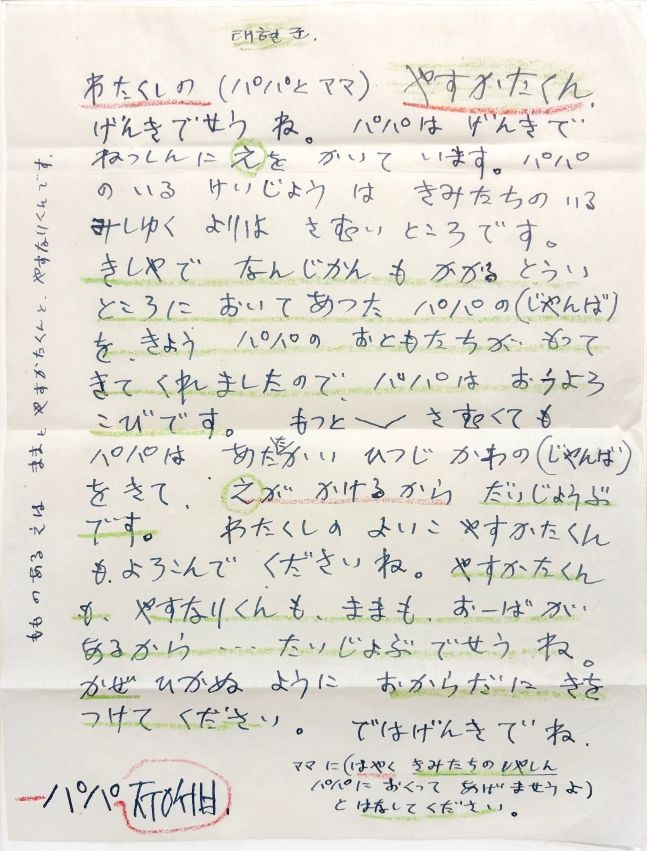 태현군.
わたくしの (パパとママ) やすかたくん.
げんきでせう ね。 パパは げんきで
ねっしんに えを かいて います。 パパ
の いる けいじょう は きみたちの いる
みしゆく よりは さむい ところです。
きしやで なんじかん も かかる とうい
ところに おいてあつた パパの(じゃんば)
を、きょう パパの おともたちが、 もって
きて くれましたので、 パパは おうよろ
こびです。 もっと さむくても
パパは あたたかい ひつじ かわの(じゃんば)
をきて、 えが かけるから だいじょうぶ
です。 わたくしの よいこ やすかたくん
も、よろこんで くださいね。 やすかたくん
も、やすなりくんも、ままも、おーばが
あるから ‥‥ たいじょぶ でせう ね。
かぜ ひかぬ ように おからだに きを
つけて ください。 ではげんきで ね.
ママに(はやく きみたちの しやしん
パパに おくって あげませうよ)
と はなしてください。
パパ
もものある えは ままと やすかたくんと、やすなりくんです.